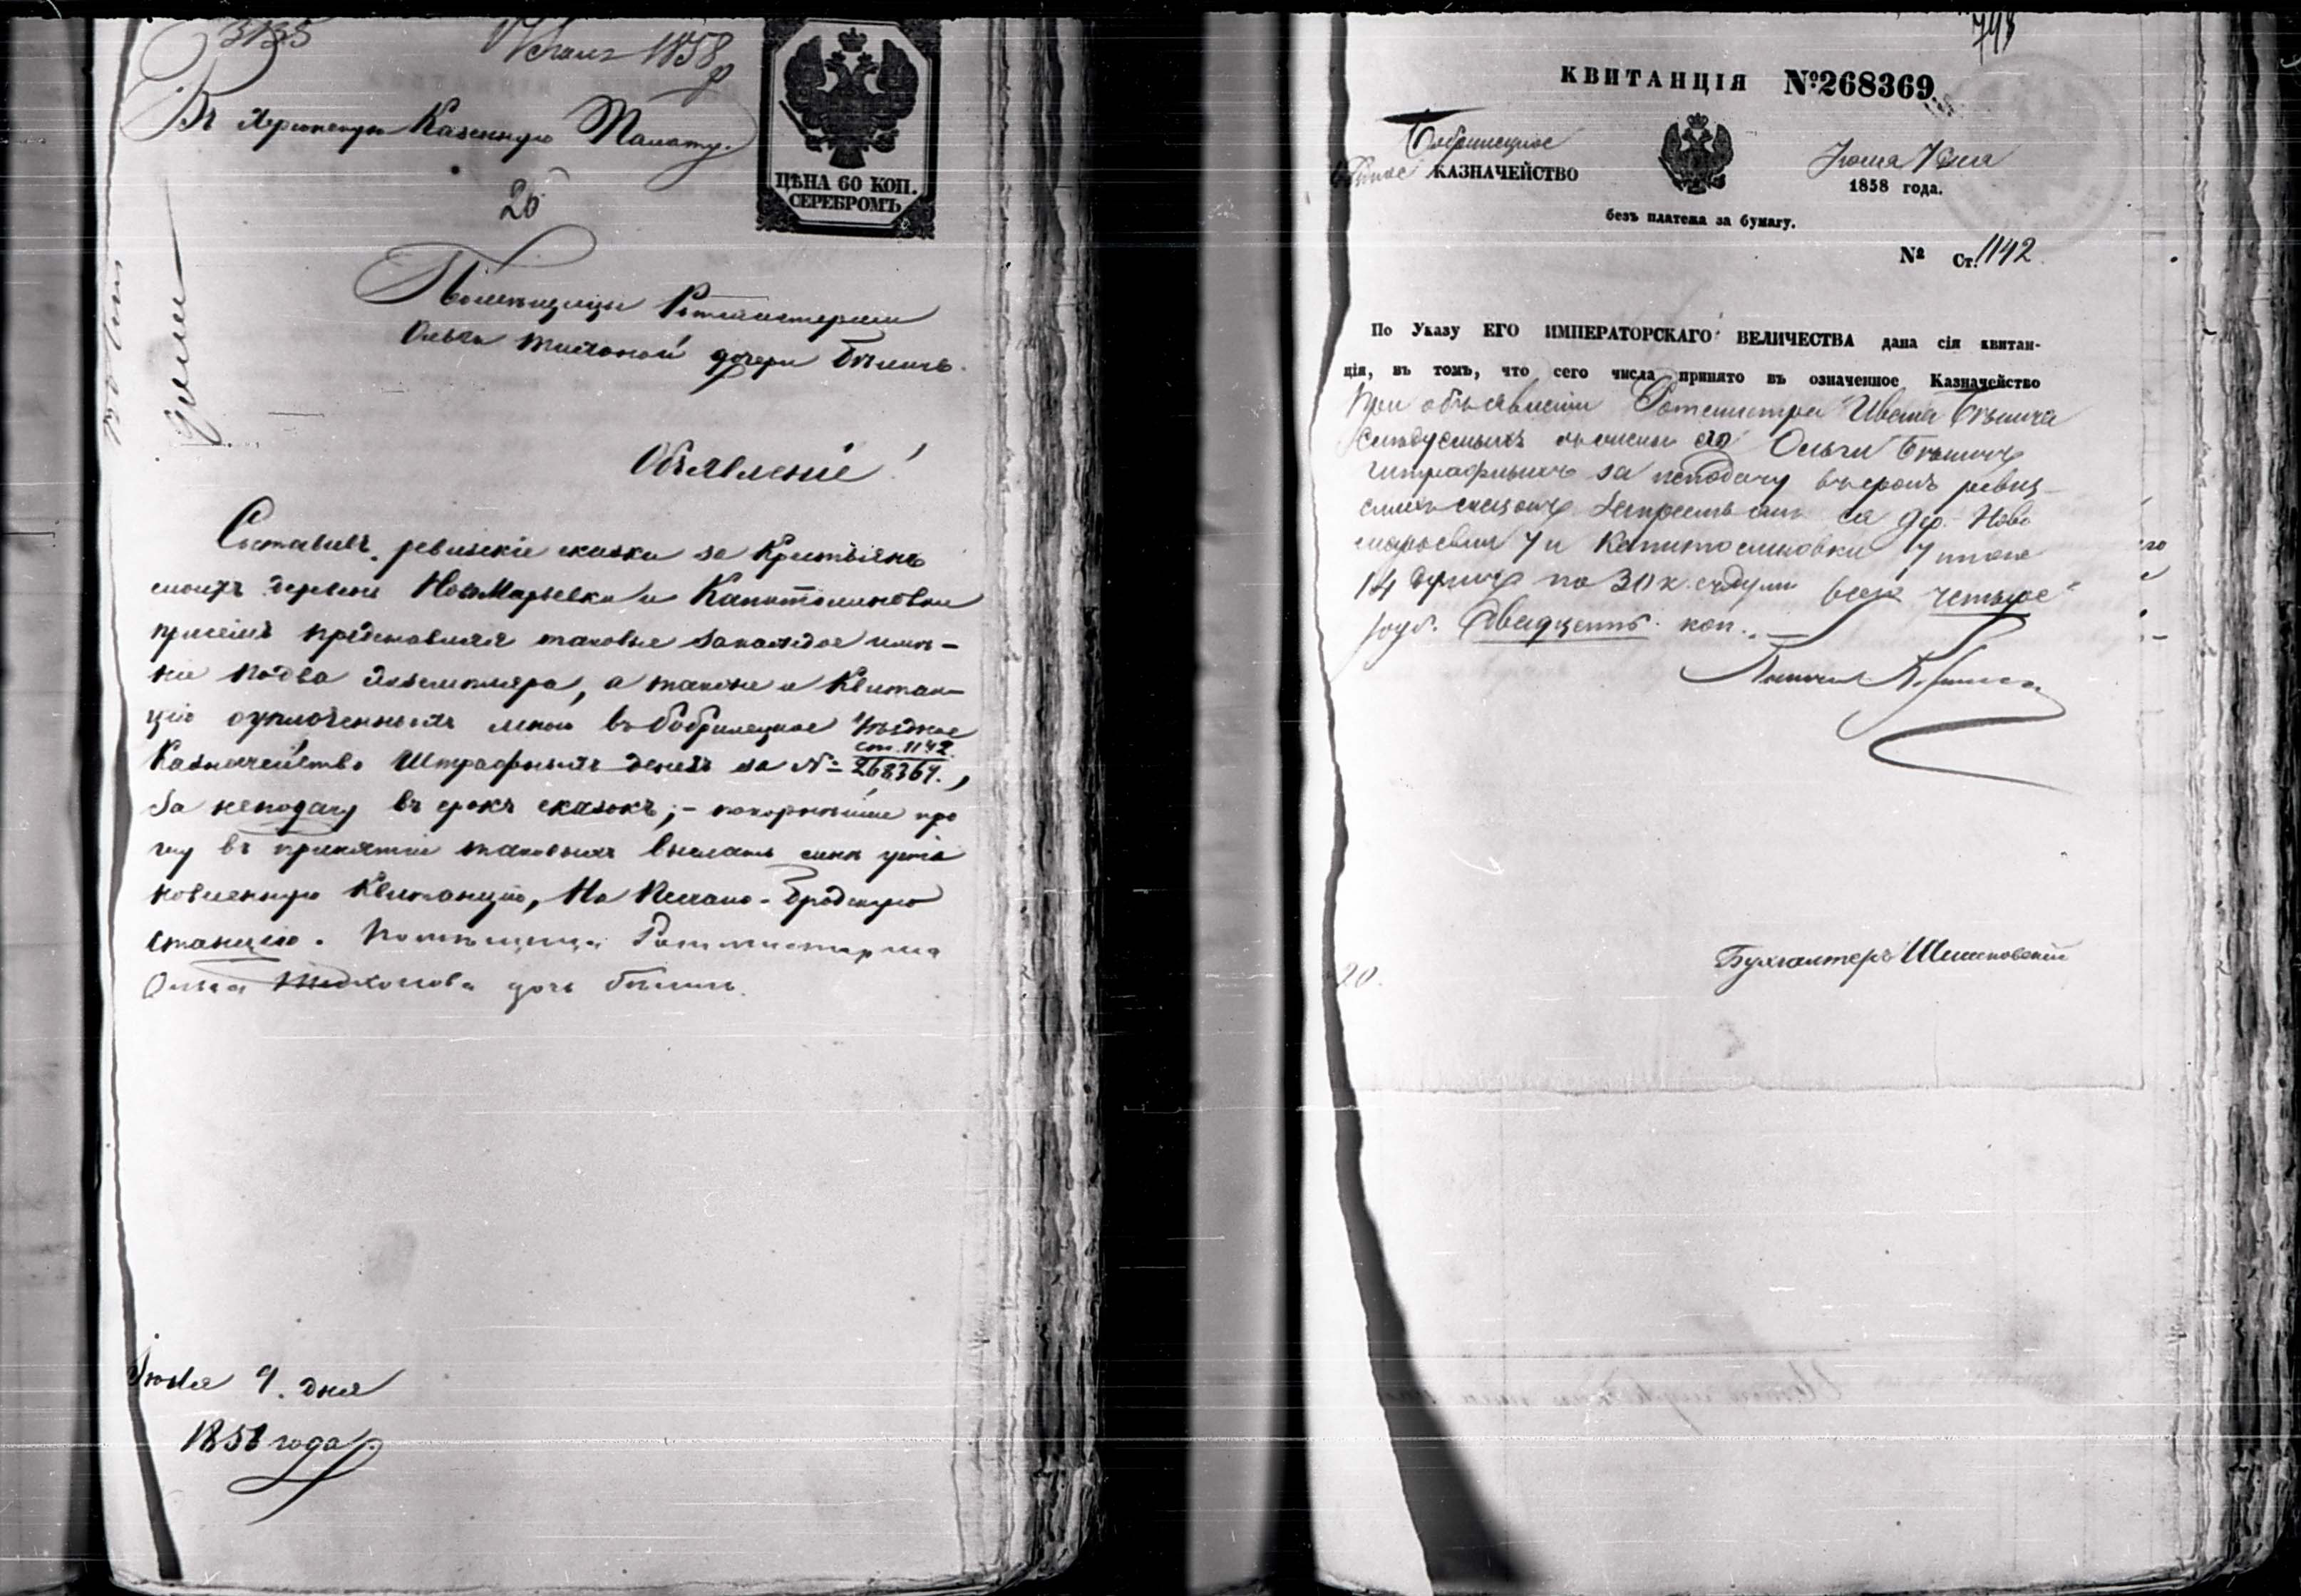 5135
1858
Въ Херсонскую Казенную Палату.
ЦѢНА 60 КОП.
СЕРЕБРОМЪ
Помѣщицы Ротмистерши
Ольги Тихоновой дочери Бѣличь.
Объявленіе!
Составивъ ревизскіе сказки за Крестьянъ
моихъ деревень НовоМарьевки и Капитолиновки
при семъ представляя таковыя за каждое имѣ-
ніе по два экземпляра, а также и Квитан-
цію оуплоченныхъ мною въ Бобринецкое Уѣздное
ст. 1142.
Казначейство Штрафныхъ денегъ за № 268369.,
За неподачу въ срокъ сказокъ; - покорнѣйше про
шу въ принятіи таковыхъ выслать мнѣ уста
новленную Квитанцію, На Песчано-Бродскую
станцію. Помѣщица Ротмистерша
Ольга Тихонова дочь Бѣличь.
Іюня 9. дня
1858 года
КВИТАНЦІЯ №268369.
Бобринецкое
КАЗНАЧЕЙСТВО
Іюня 7 дня
1858 года.
безъ платежа за бумагу.
№ Ст. 1142
По Указу ЕГО ИМПЕРАТОРСКАГО ВЕЛИЧЕСТВА дана сія квитан-
ція, въ томъ, что сего числа принято въ означенное Казначейство
При объявленіи Ротмистра Ивана Бѣлича
слѣдуемыхъ съ жены его Ольги Бѣличь
штрафныхъ за неподачу въ срокъ ревиз-
скихъ сказокъ за дер. Ново
марьевки 7 и Капитолиновки 7 итого
14 душъ по 30 к. съ души всего четыре
руб. двадцать коп.
Бухгалтеръ Шишковскій
20.